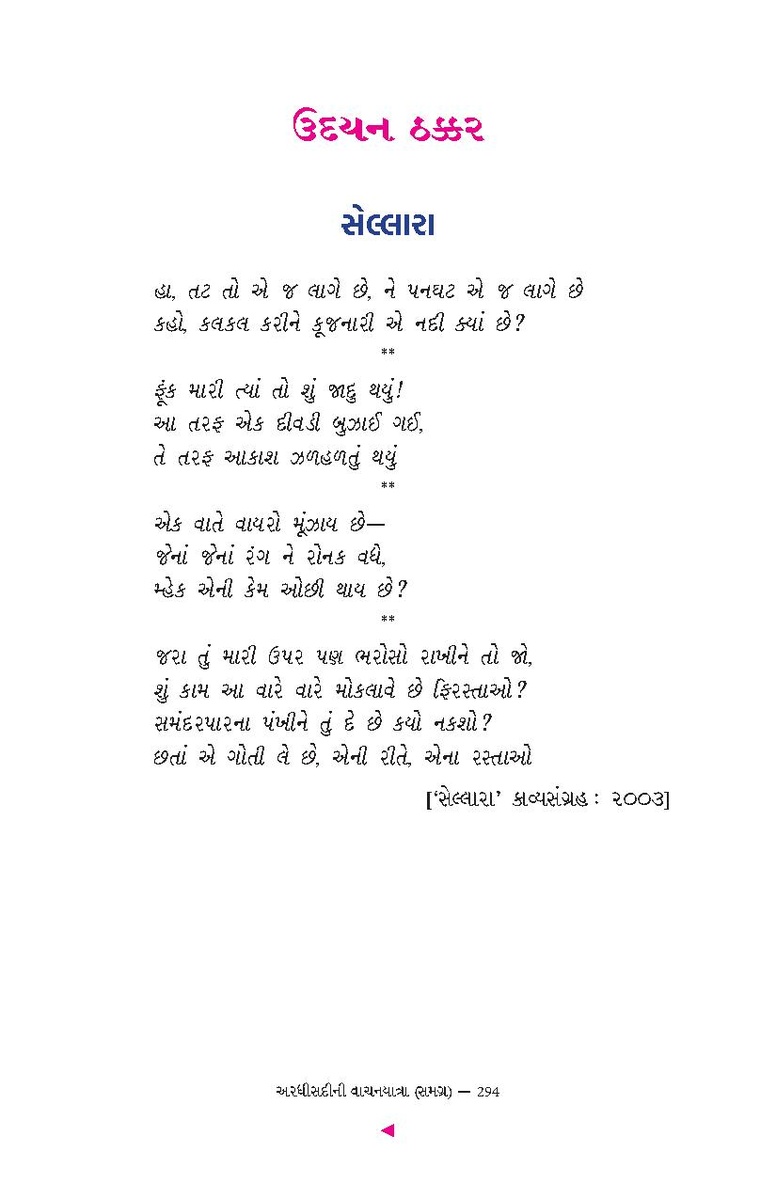 ઉદયન ઠક્કર
સેલ્લારા
હા, તટ તો એ જ લાગે છે, ને પનઘટ એ જ લાગે છે
કહો, કલકલ કરીને કૂજનારી એ નદી ક્યાં છે?
**
ફૂંક મારી ત્યાં તો શું જાદુ થયું!
આ તરફ એક દીવડી બુઝાઈ ગઈ,
તે તરફ આકાશ ઝળહળતું થયું
**
એક વાતે વાયરો મૂંઝાય છે—
જેનાં જેનાં રંગ ને રોનક વધે,
મ્હેક એની કેમ ઓછી થાય છે?
**
જરા તું મારી ઉપર પણ ભરોસો રાખીને તો જો,
શું કામ આ વારે વારે મોકલાવે છે ફિરસ્તાઓ?
સમંદરપારના પંખીને તું દે છે કયો નકશો?
છતાં એ ગોતી લે છે, એની રીતે, એના રસ્તાઓ
[‘સેલ્લારા’ કાવ્યસંગ્રહ : ૨૦૦૩]
અરધીસદીની વાચનયાત્રા (સમગ્ર) — 294